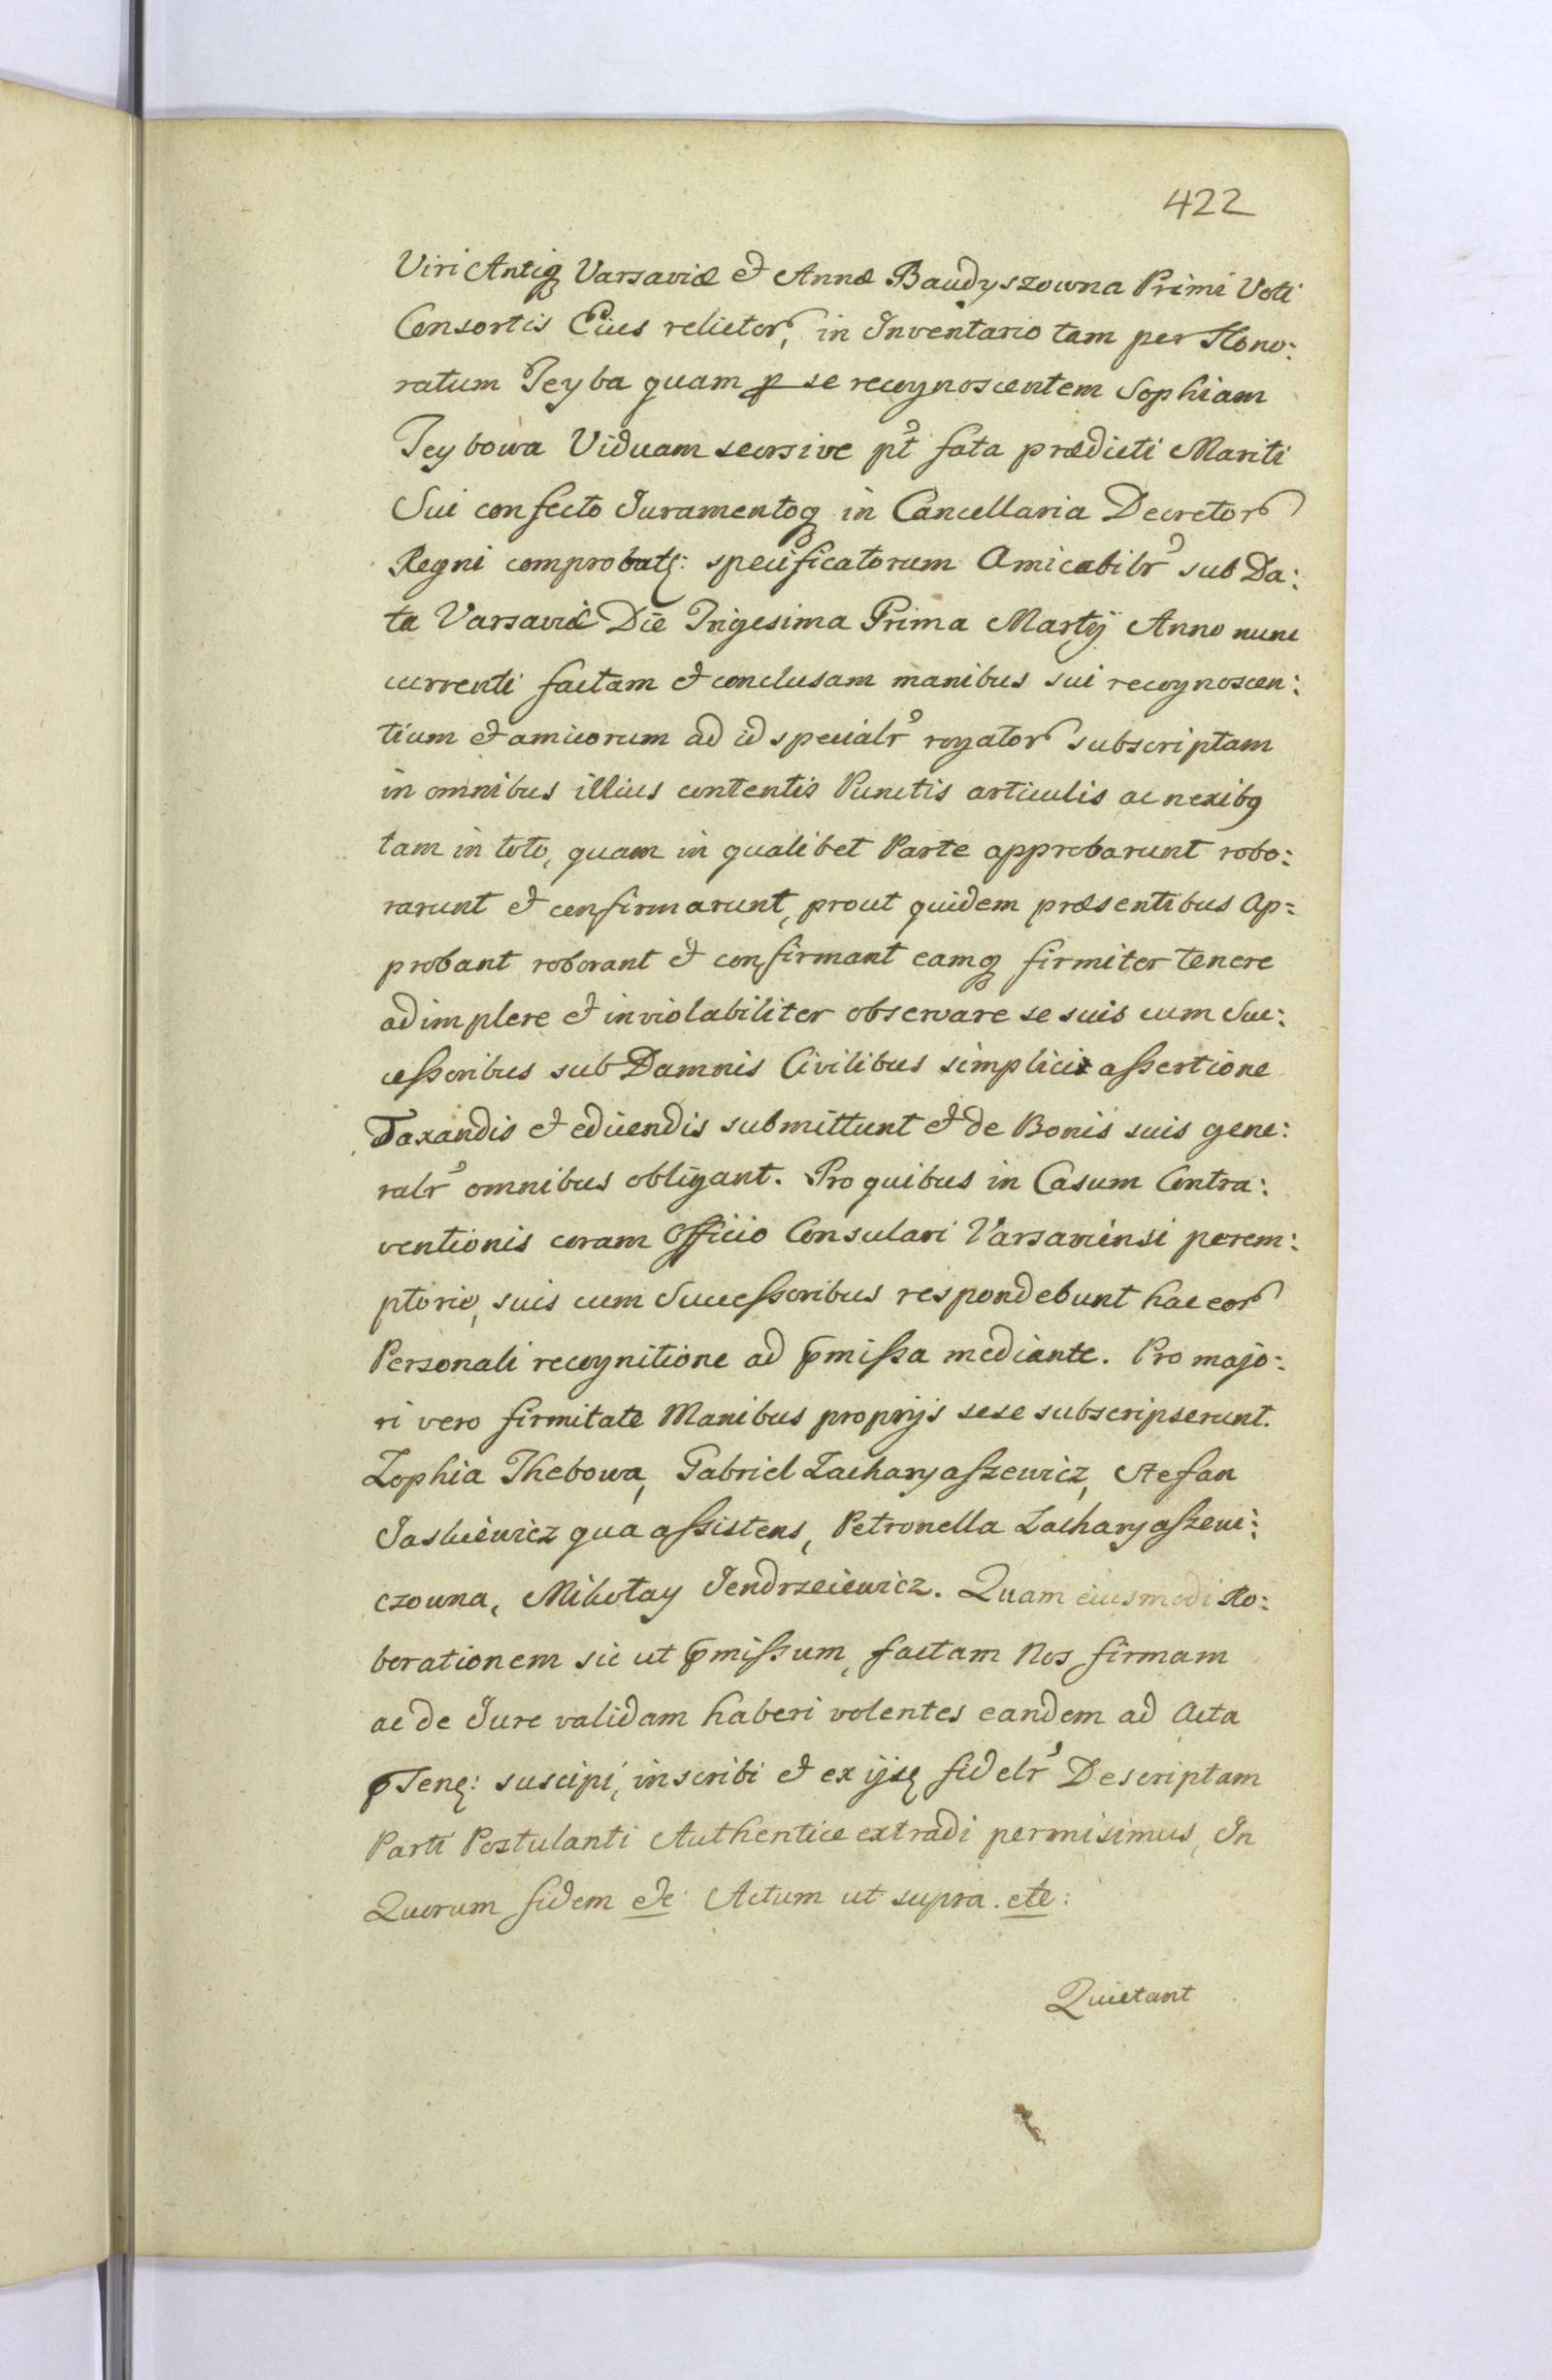 422
Viri Antiq Varsaviæ et Annæ Baudyszowna Primi Voti
Consortis Eius relictor, in Inventario tam per Hono:
ratum Teyba quam p se recognoscentem Sophiam
Teybowa Viduam seorsive pt fata prædicti Mariti
Sui confecto Juramentoq in Cancellaria Decretor
Regni comprobatę: specificatorum Amicabilr sub Da:
ta Varsaviæ Die Trigesima Prima Martÿ Anno nunc
currenti factam et conclusam manibus sui recognoscen:
tium et amicorum ad id specialr rogator subscriptam
in omnibus illius contentis Punctis articulis ac nexibq
tam in toto, quam in qualibet Parte approbarunt robo:
rarunt et confirmarunt, prout quidem præsentibus Ap=
probant roborant et confirmant eamq firmiter tenere
adimplere et inviolabiliter observare se suis cum Suc:
cessoribus sub Damnis Civilibus simplici assertione
Taxandis et educendis submittunt et de Bonis suis gene:
ralr omnibus obligant. Pro quibus in Casum Contra:
ventionis coram Officio Consulari Varsaviensi perem:
ptorie, suis cum Successoribus respondebunt hac eor
Personali recognitione ad pmissa mediante. Pro majo:
ri vero firmitate Manibus proprijs sese subscripserunt.
Zophia Thebowa, Gabriel Zacharyaszewicz, Stefan
Jaskiewicz qua assistens, Petronella Zacharyaszewi:
czowna, Mikołay Jendrzeiewicz. Quam eiusmodi Ro:
borationem sic ut pmissum, factam Nos firmam
ac de Jure validam haberi volentes eandem ad Acta
pSenę: suscipi, inscribi et ex ijsę fidelr Descriptam
Parti Postulanti Authentice extradi permisimus, In
Quorum fidem etc: Actum ut supra. etc:
Quietant